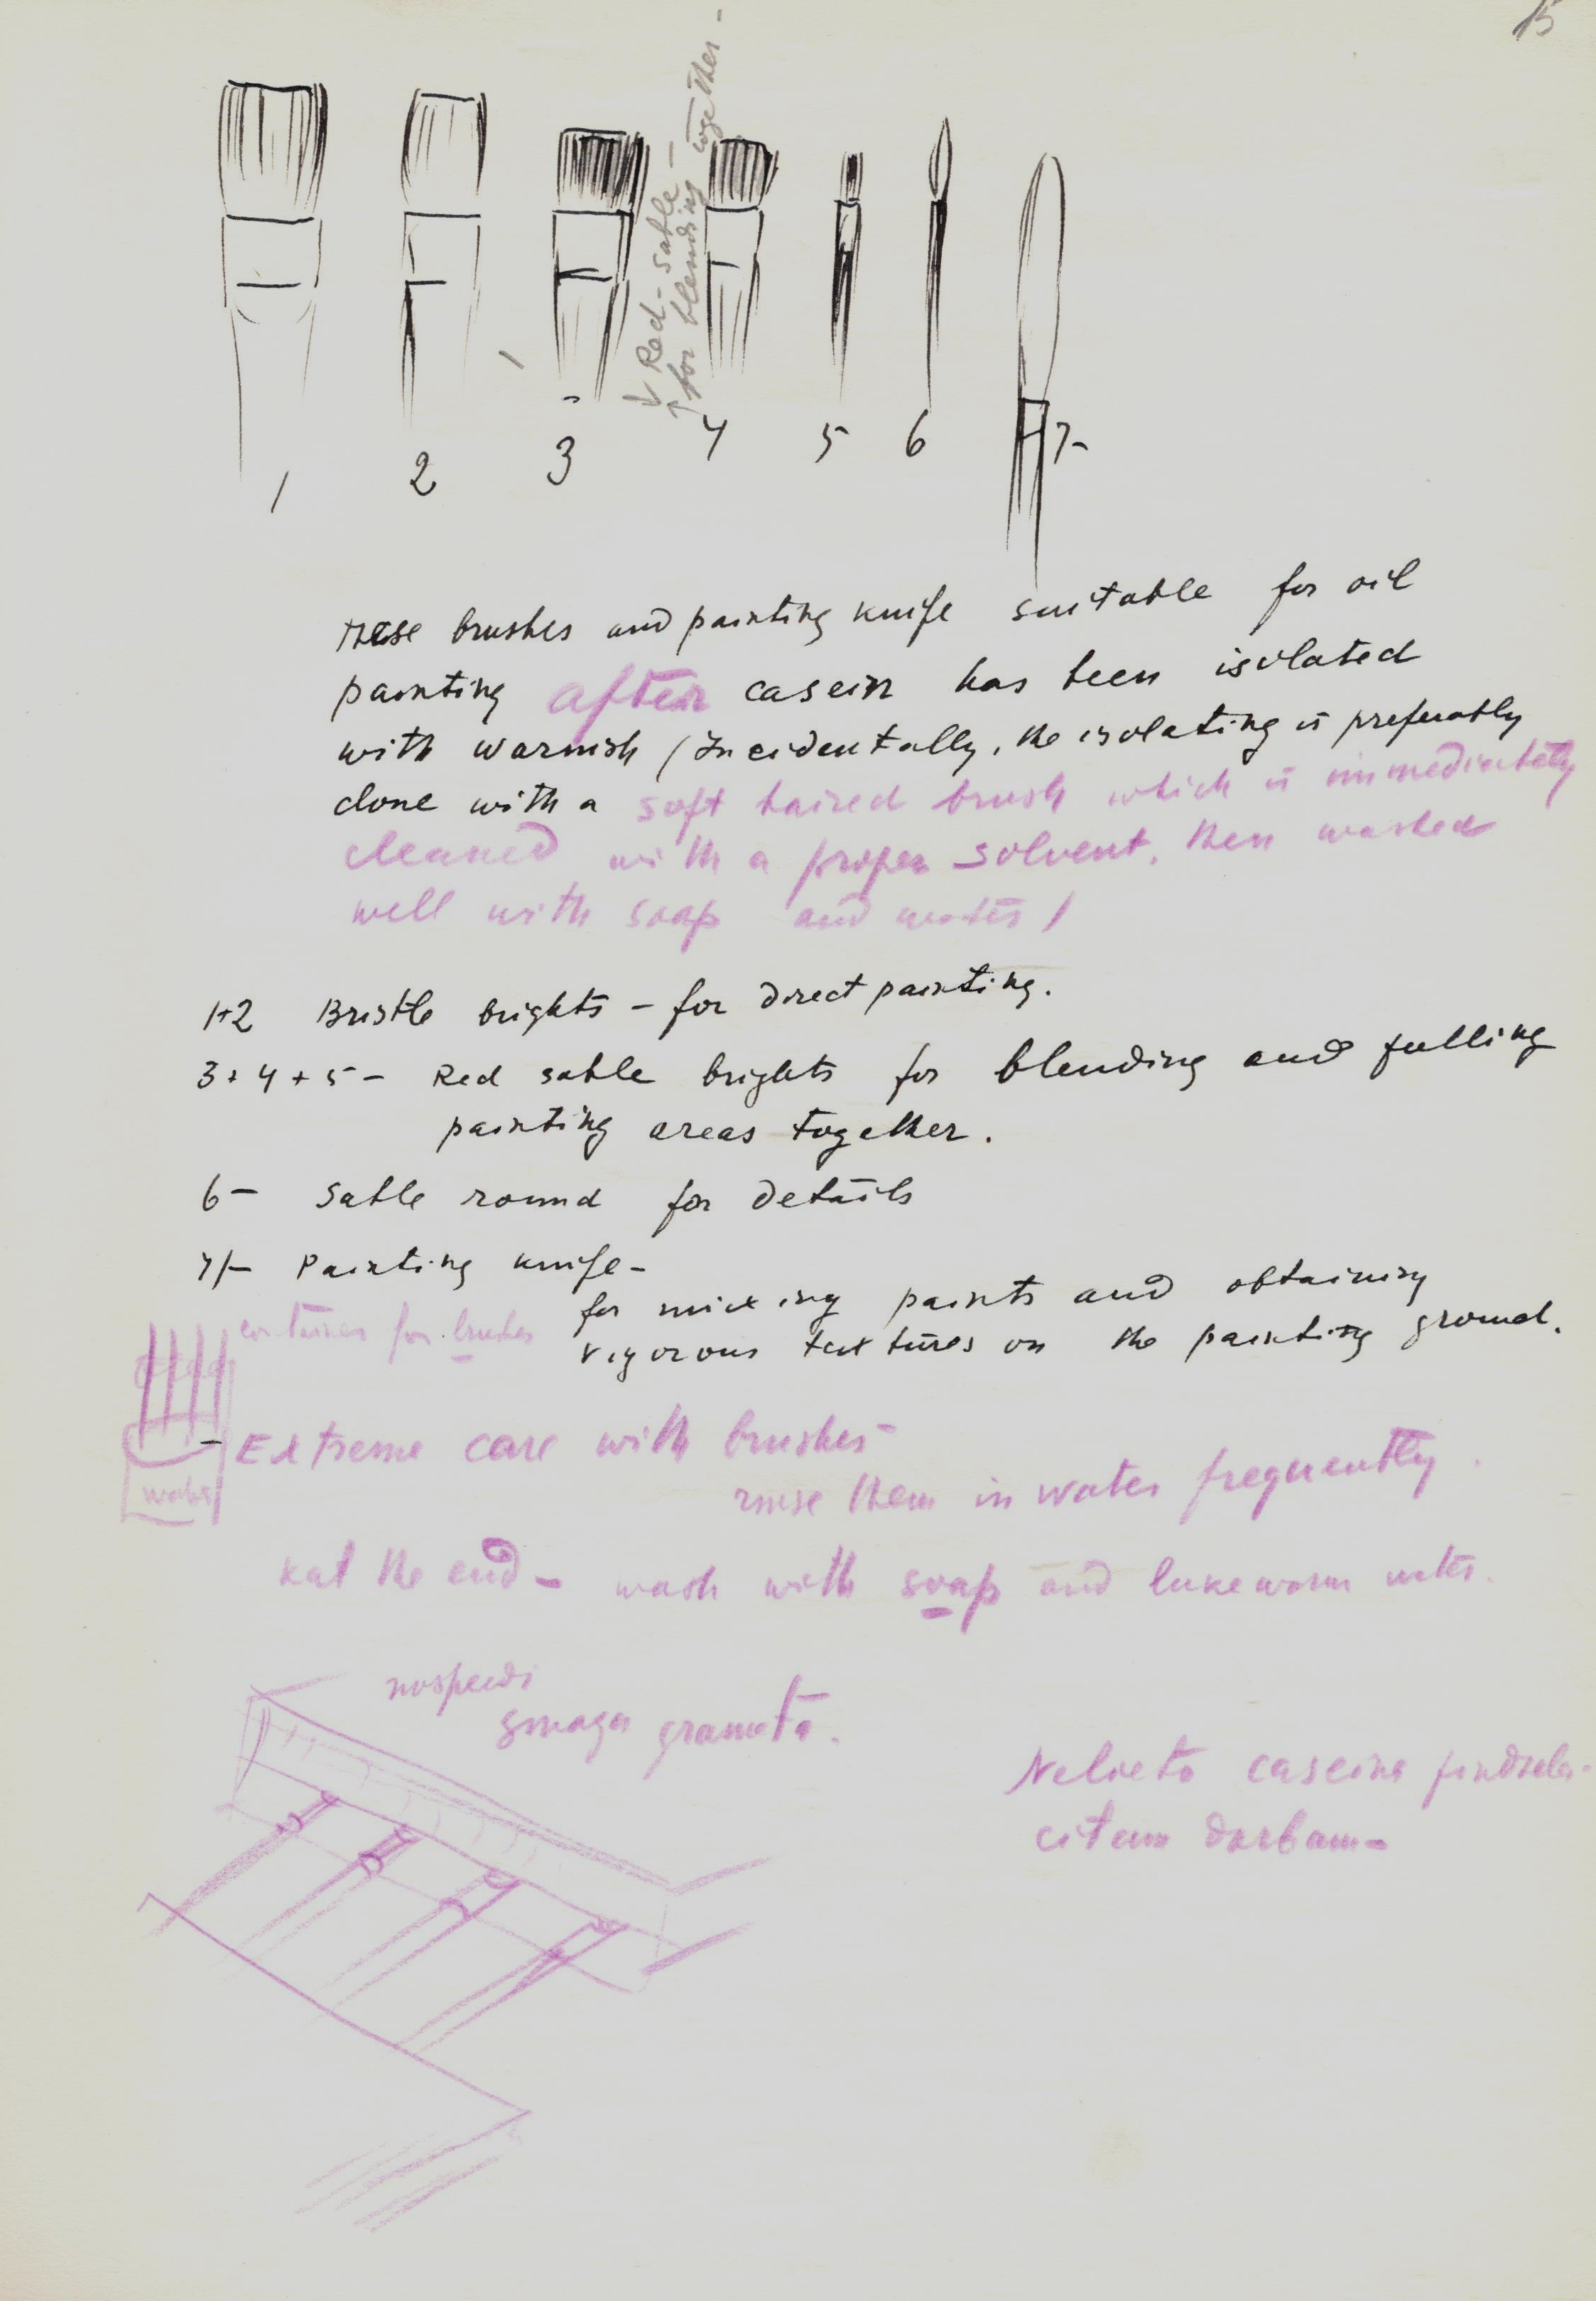 15
↓ Red-sable-
↑ for blending together-
1 2 3 4 5 6 7-
These brushes and painting knife suitable for oil
painting after casein has been isolated
with warnish (Incidentally, the isolating is preferably
done with a soft haired brush which is immediately
cleaned with a proper solvent, then washed
well with soap and water)
1+2 Bristle brights - for direct painting.
3+4+5- Red sable brights for blending and pulling
painting areas together.
6- Sable round for details
7/- Painting knife-
for mixing paints and obtaining
vigorous textures on the painting ground.
container for brushes
water
- Extreme care with brushes-
rinse them in water frequently.
at the end - wash with soap and lukewarm water.
nospeidi
smaga gramata.
Nelieto caseina pindseles
citam darbam-